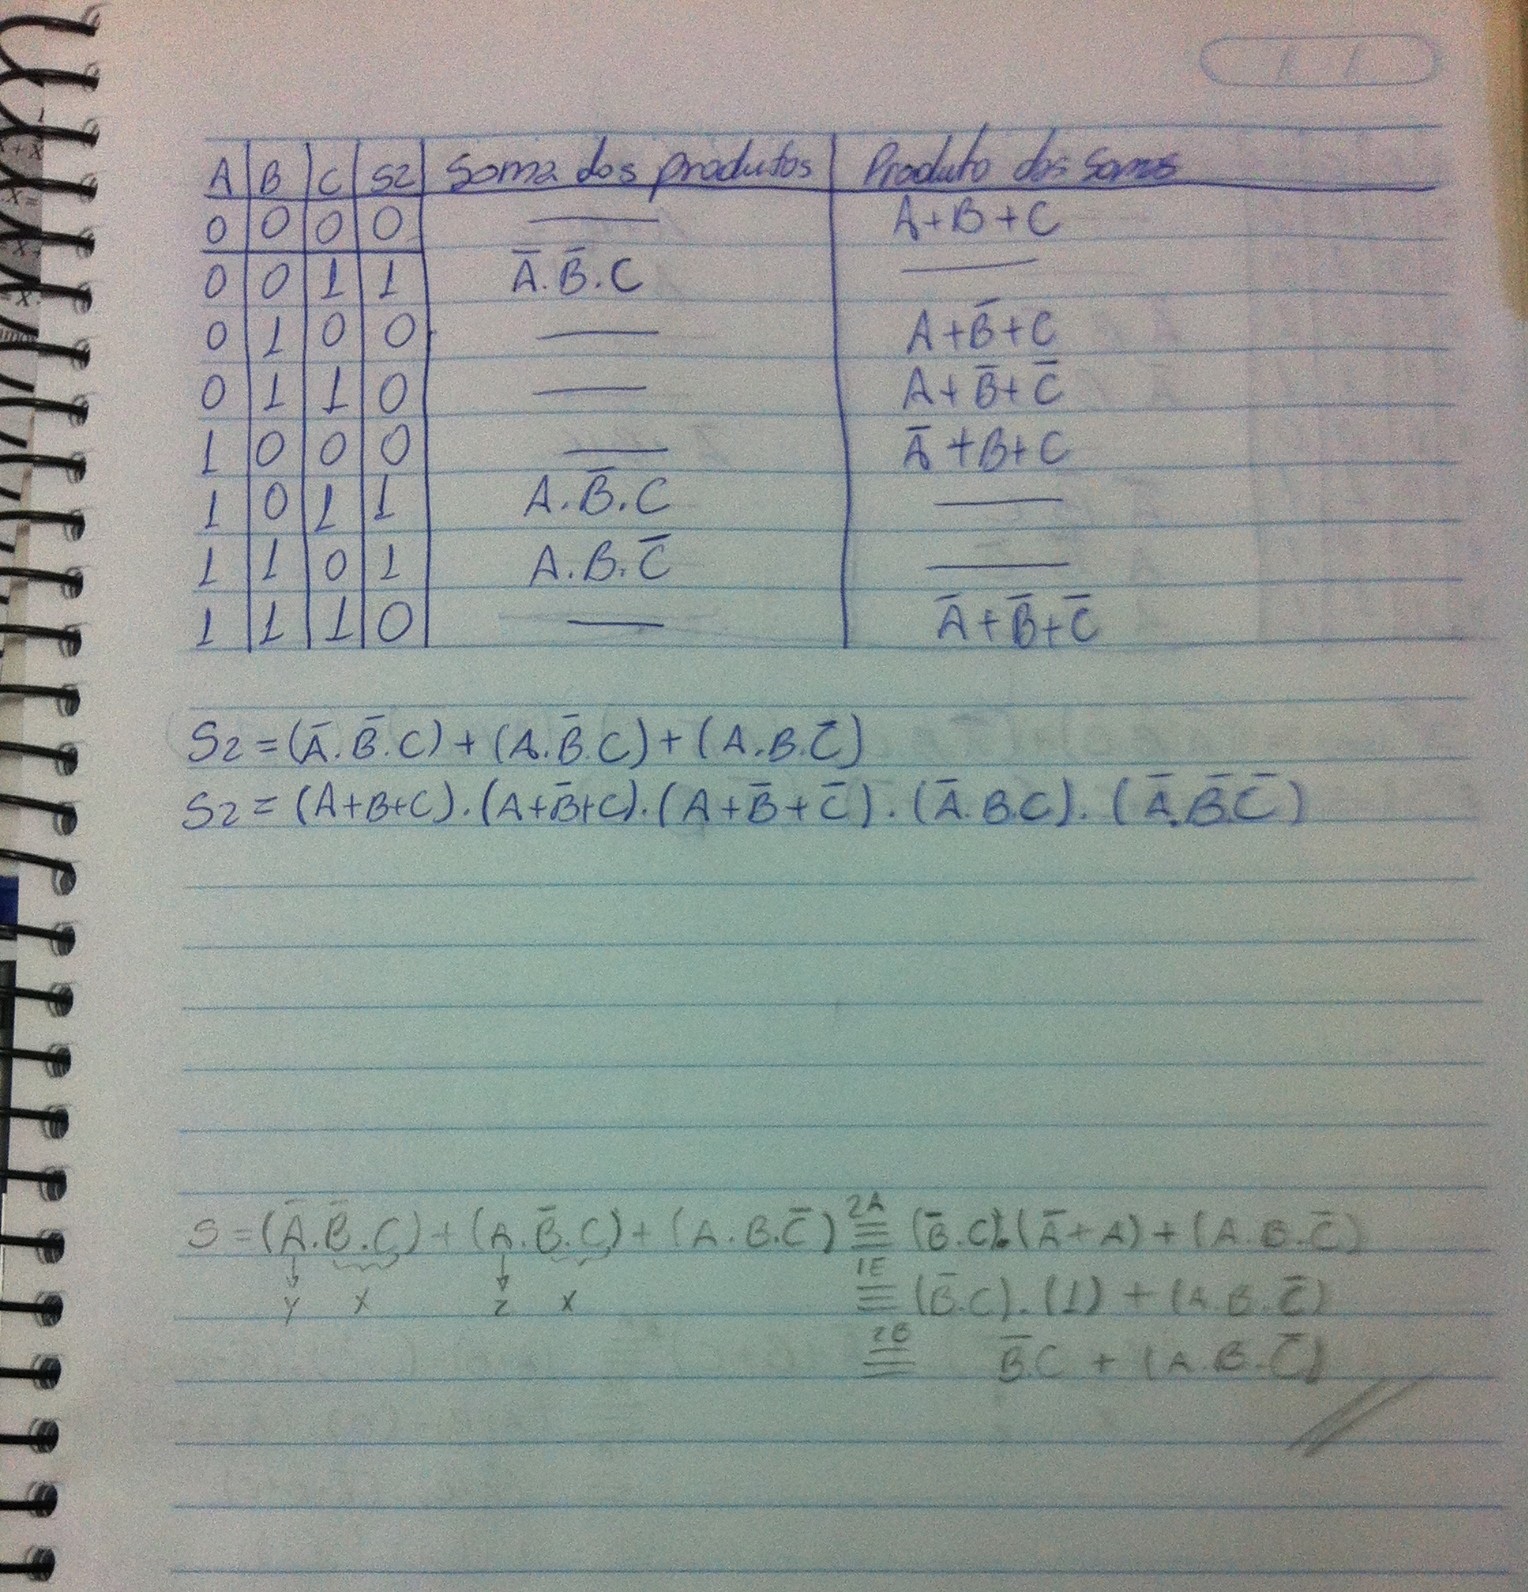 A B C S2 Soma dos produtos Produto das Somas
0 0 0 0 —— A+B+C
0 0 1 1 A̅.B̅.C ——
0 1 0 0 —— A+B̅+C
0 1 1 0 —— A+B̅+C̅
1 0 0 0 —— A̅+B+C
1 0 1 1 A.B̅.C ——
1 1 0 1 A.B.C̅ ——
1 1 1 0 —— A̅+B̅+C̅
S2=(A̅.B̅.C)+(A.B̅.C)+(A.B.C̅)
S2=(A+B+C).(A+B̅+C).(A+B̅+C̅).(A̅.B.C).(A̅.B̅.C̅)
S=(A̅.B̅.C)+(A.B̅.C)+(A.B.C̅) 2A ≡ (B̅.C).(A̅+A)+(A.B.C̅)
Y X Z X 1E ≡ (B̅.C).(1)+(A.B.C̅)
2B ≡ B̅.C+(A.B.C̅)